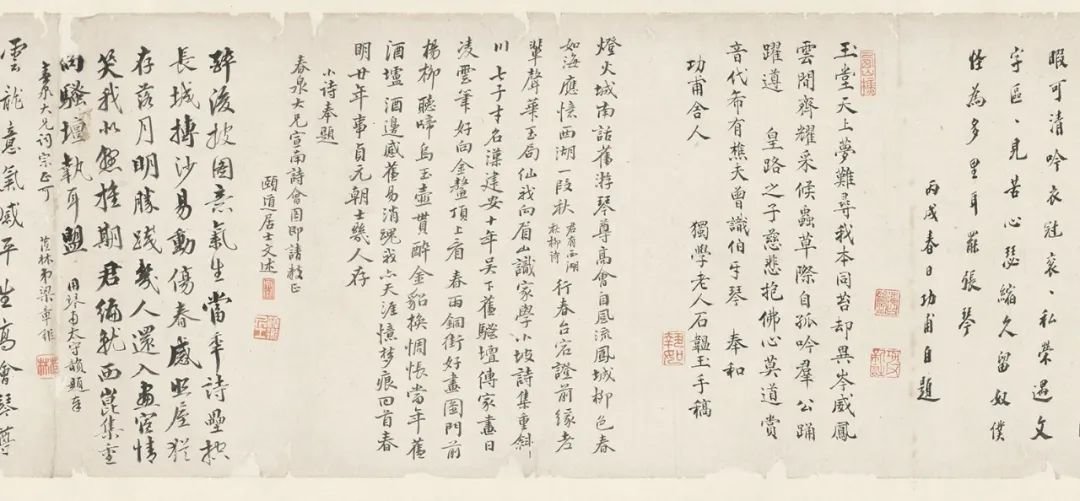 暇可清吟衣冠裒裒私榮遇文
字區區見苦心瑟縮久留奴僕
怪為多耳罷張琴
丙戌春日功甫自題
玉堂天上夢難尋我本同苔却異岑威鳳
雲間齊耀采候蟲草際自孤吟羣公踊
躍遵 皇路之子慈悲抱佛心莫道賞
音代希有樵夫曾識伯牙琴 奉和
功甫舍人
獨學老人石韞玉手稿
燈火城南話舊游琴尊高會自風流鳳城柳色春
如海應憶西湖一段秋 君有西湖秋柳詩 行春台宕證前緣老
輩聲華玉局仙我向眉山識家學小坡詩集重斜
川 七子才名漢建安十年吳下舊騷壇傳家畫日
凌雲筆好向金鰲頂上看 春雨銅街好畫圖門前
楊柳聽啼烏玉壺貰醉金貂換惆悵當年舊
酒壚 酒邊感舊易消魂我亦天涯憶夢痕回首春
明廿年事貞元朝士幾人存
小詩奉題
春泉大兄宣南詩會圖即請教正
頤道居士文述
醉後披圖意氣生當年詩壘抵
長城摶沙易動傷春感照屋猶
存落月明勝踐幾人還入畫宦情
笑我期君編就西崑集重
向騷壇執耳盟 用琴南太守韻題奉
春泉大兄詞宗正可 茝林弟梁章鉅
雲龍意氣感平生高會琴尊